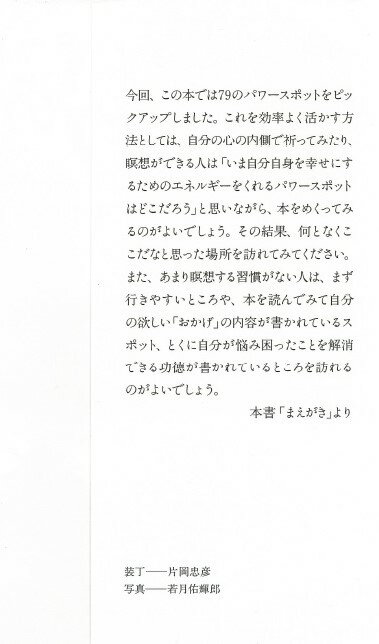 今回、この本では79のパワースポットをピッ
クアップしました。これを効率よく活かす方
法としては、自分の心の内側で祈ってみたり、
瞑想ができる人は「いま自分自身を幸せにす
るためのエネルギーをくれるパワースポット
はどこだろう」と思いながら、本をめくってみ
るのがよいでしょう。その結果、何となくこ
こだなと思った場所を訪れてみてください。
また、あまり瞑想する習慣がない人は、まず
行きやすいところや、本を読んでみて自分
の欲しい「おかげ」の内容が書かれているス
ポット、とくに自分が悩み困ったことを解消
できる功徳が書かれているところを訪れる
のがよいでしょう。
本書「まえがき」より
装丁──片岡忠彦
写真──若月佑輝郎